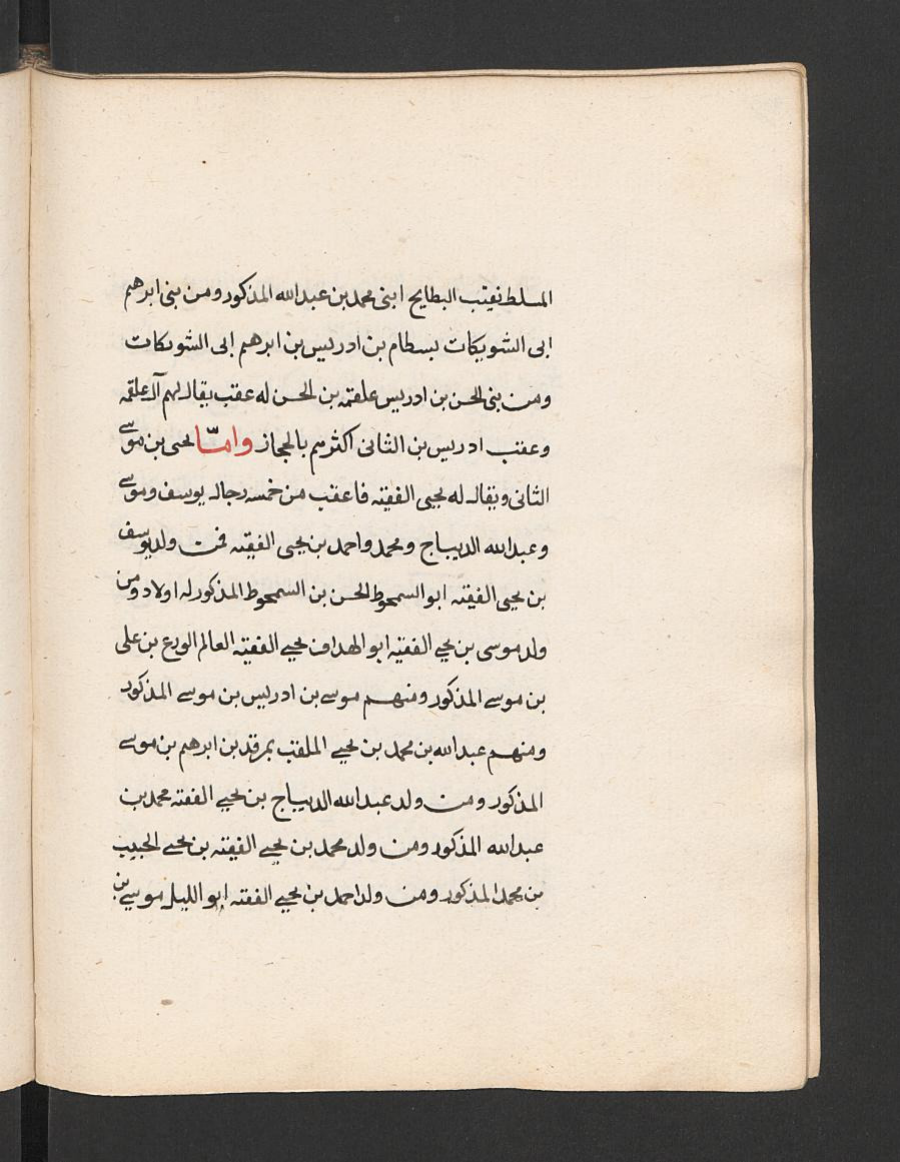 المسلط نقيب البطايح ابنى محمد بن عبد الله المذكور ومن بنى ابرهيم
ابى الشويكات بسطام بن ادريس بن ابرهيم ابى الشويكات
ومن بنى الحسن بن ادريس علقمة بن الحسن له عقب يقال لهم آل علقمة
وعقب ادريس بن الثانى اكثرهم بالحجاز وامّا يحيى بن موسى
الثانى ويقال له يحيى الفقيه فاعقب من خمسه رجال يوسف وموسى
وعبد الله الديباج ومحمد واحمد بن يحيى الفقيه فمن ولد يوسف
بن يحيى الفقيه ابو السمحوط الحسن بن السمحوط المذكور له اولاد ومن
ولد موسى بن يحيى الفقيه ابو الهداف يحيى الفقيه العالم الورع بن على
بن موسى المذكور ومنهم موسى بن ادريس بن موسى المذكور
ومنهم عبد الله بن محمد بن يحيى الملقب بمرقد بن ابرهيم بن موسى
المذكور ومن ولد عبد الله الديباج بن يحيى الفقيه محمد بن
عبد الله المذكور ومن ولد محمد بن يحيى الفقيه بن يحيى الحبيب
بن محمد المذكور ومن ولد احمد بن يحيى الفقيه ابو الليل موسى بن